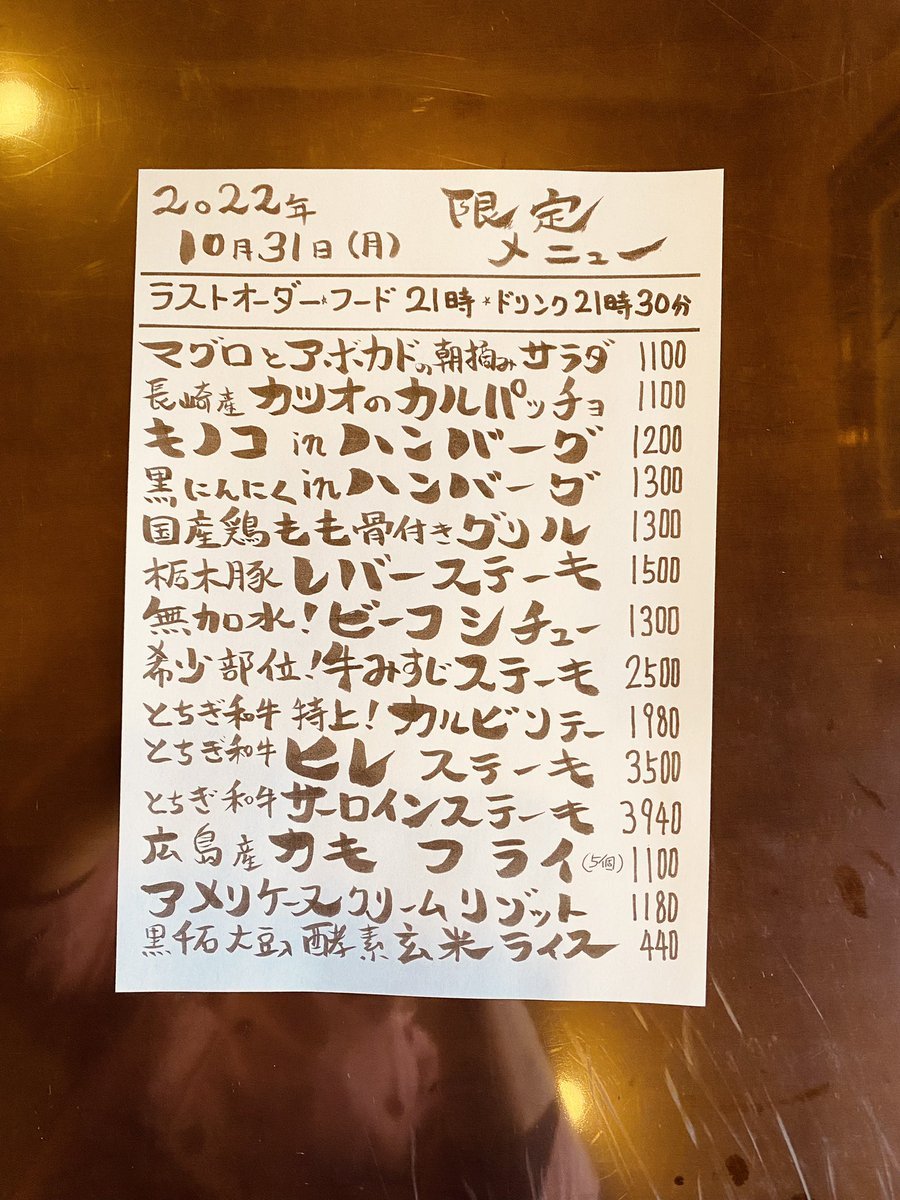 2022年 限定
10月31日(月) メニュー
ラストオーダー*フード 21時*ドリンク21時30分
マグロとアボカドの朝摘みサラダ 1100
長崎産 カツオのカルパッチョ 1100
キノコ in ハンバーグ 1200
黒にんにく in ハンバーグ 1300
国産鶏もも骨付きグリル 1300
栃木豚 レバーステーキ 1500
無加水!ビーフシチュー 1300
希少部位!牛みすじステーキ 2500
とちぎ和牛 特上!カルビソテー 1980
とちぎ和牛 ヒレステーキ 3500
とちぎ和牛 サーロインステーキ 3940
広島産 カキフライ (5個) 1100
アメリケーヌクリームリゾット 1180
黒千石大豆入酵素玄米ライス 440